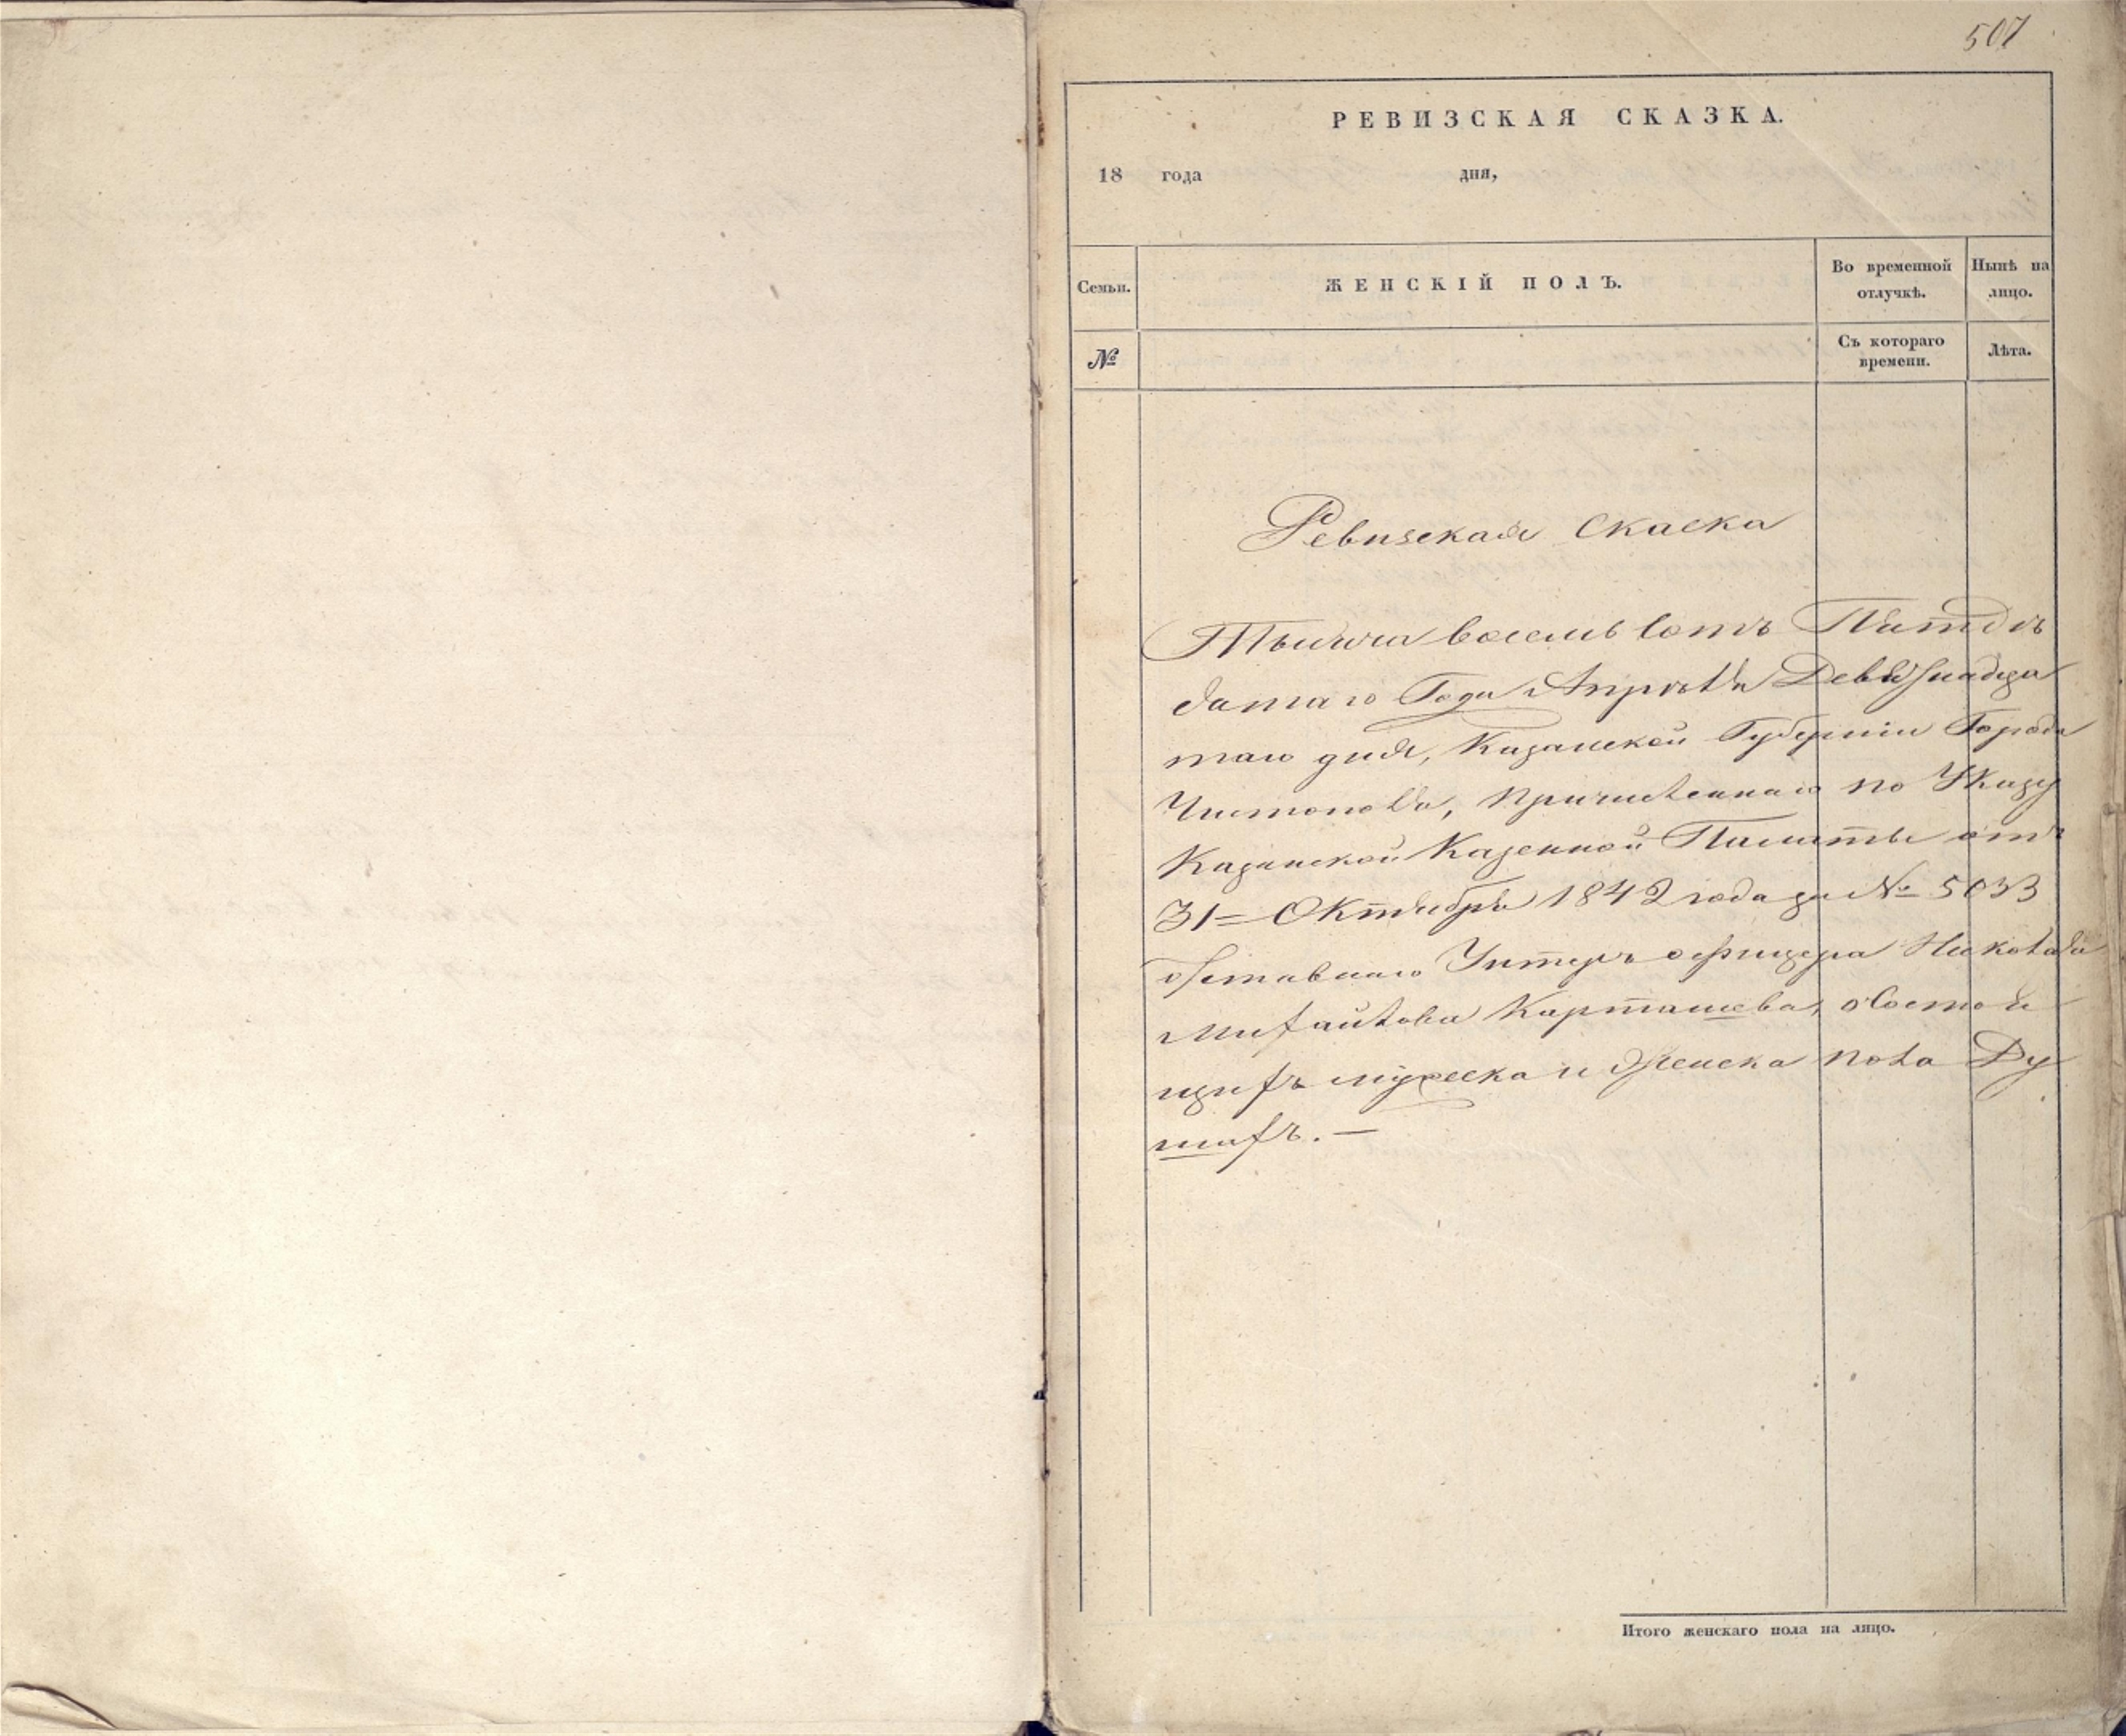 507
РЕВИЗСКАЯ СКАЗКА.
18 года дня,
Семьи. ЖЕНСКІЙ ПОЛЪ. Во временной отлучкѣ. Нынѣ на лицо.
№ Съ котораго времени. Лѣта.
Ревизская Скаска
Тысяча восемь сотъ Пятдѣ
сятаго Года Апрѣля Девятнадца
таго дня, Казанской Губерніи Города
Чистополя, Причисленнаго по Указу
Казанской Казенной Палаты отъ
31= Октября 1842 года за № 5033
отставнаго Унтеръ офицера Николая
Михайлова Карташева, о Состоя
щихъ мужеска и Женска пола Ду
шахъ. —
Итого женскаго пола на лицо.